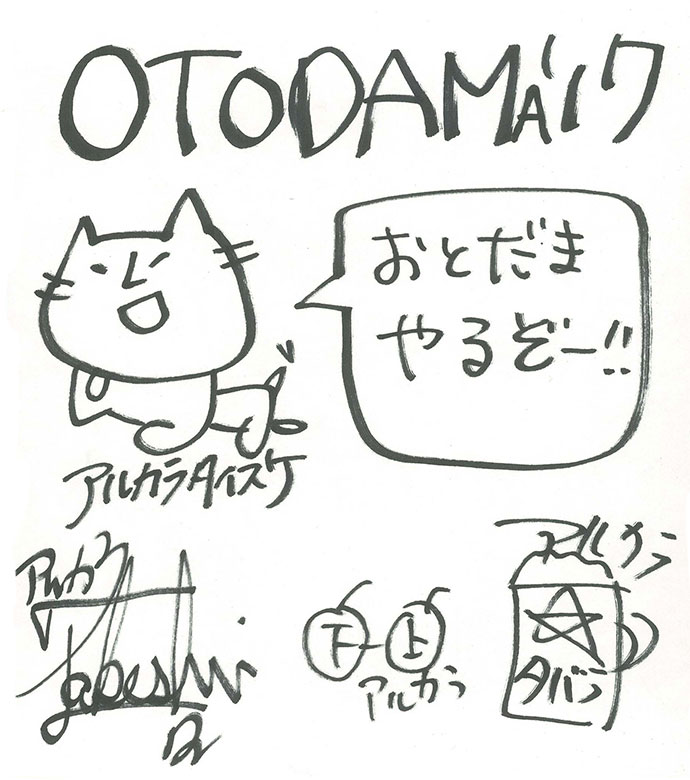 OTODAMAバンク
おとだま
やるぞー!!
アルカラタイスケ
アルカラ
Takeshi
下
上
アルカラ
アルカラ
タバラ